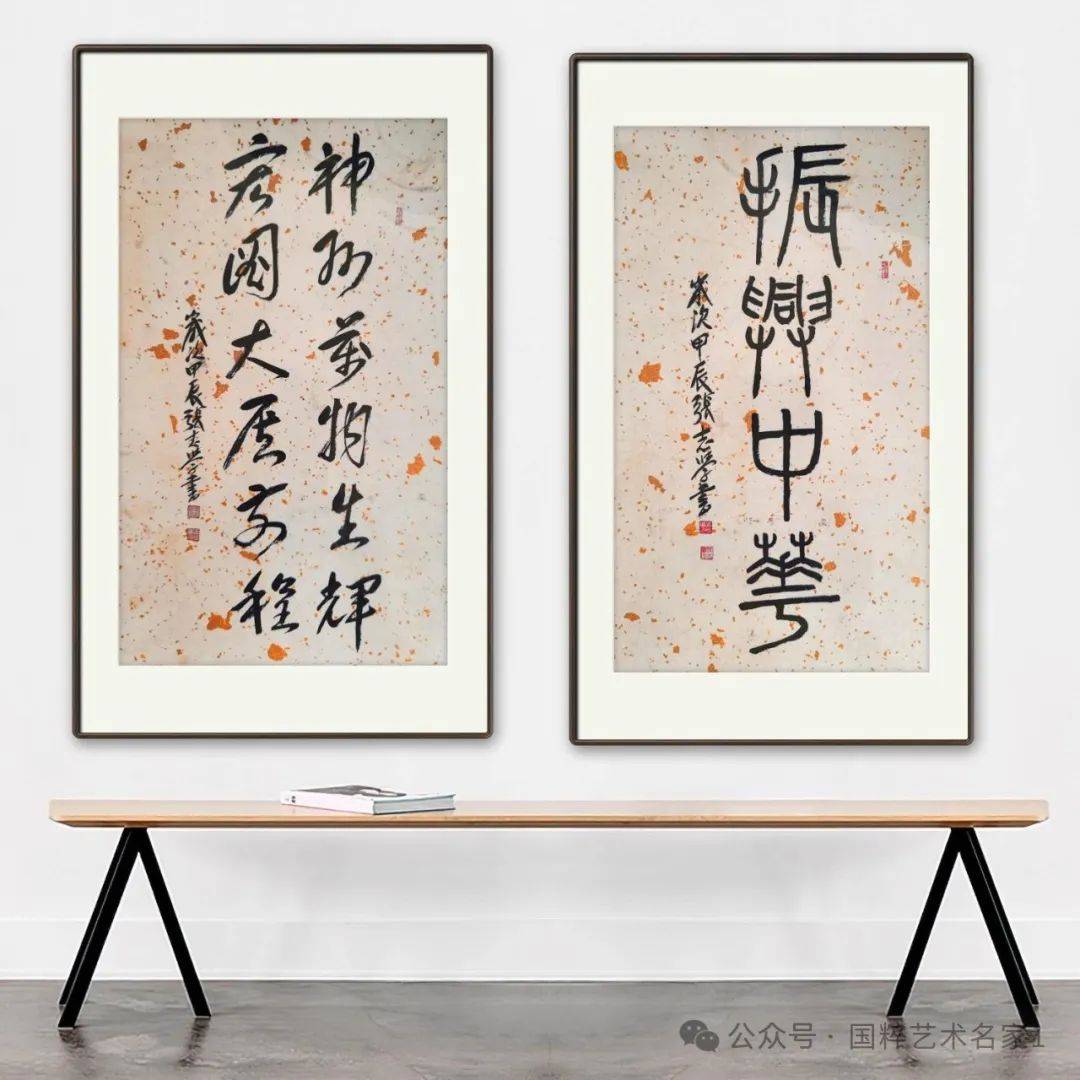 神州萬物生輝
宏圖大展前程
歲次甲辰張志學書
振興中華
歲次甲辰張志學書
公众号 · 国粹艺术名家1